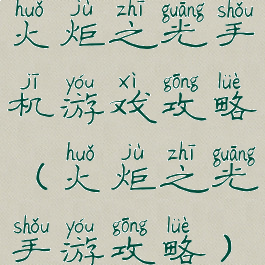 huǒ jù zhī guāng shǒu
火炬之光手
jī yóu xì gōng lüè
机游戏攻略
huǒ jù zhī guāng
（火炬之光
shǒu yóu gōng lüè
手游攻略）